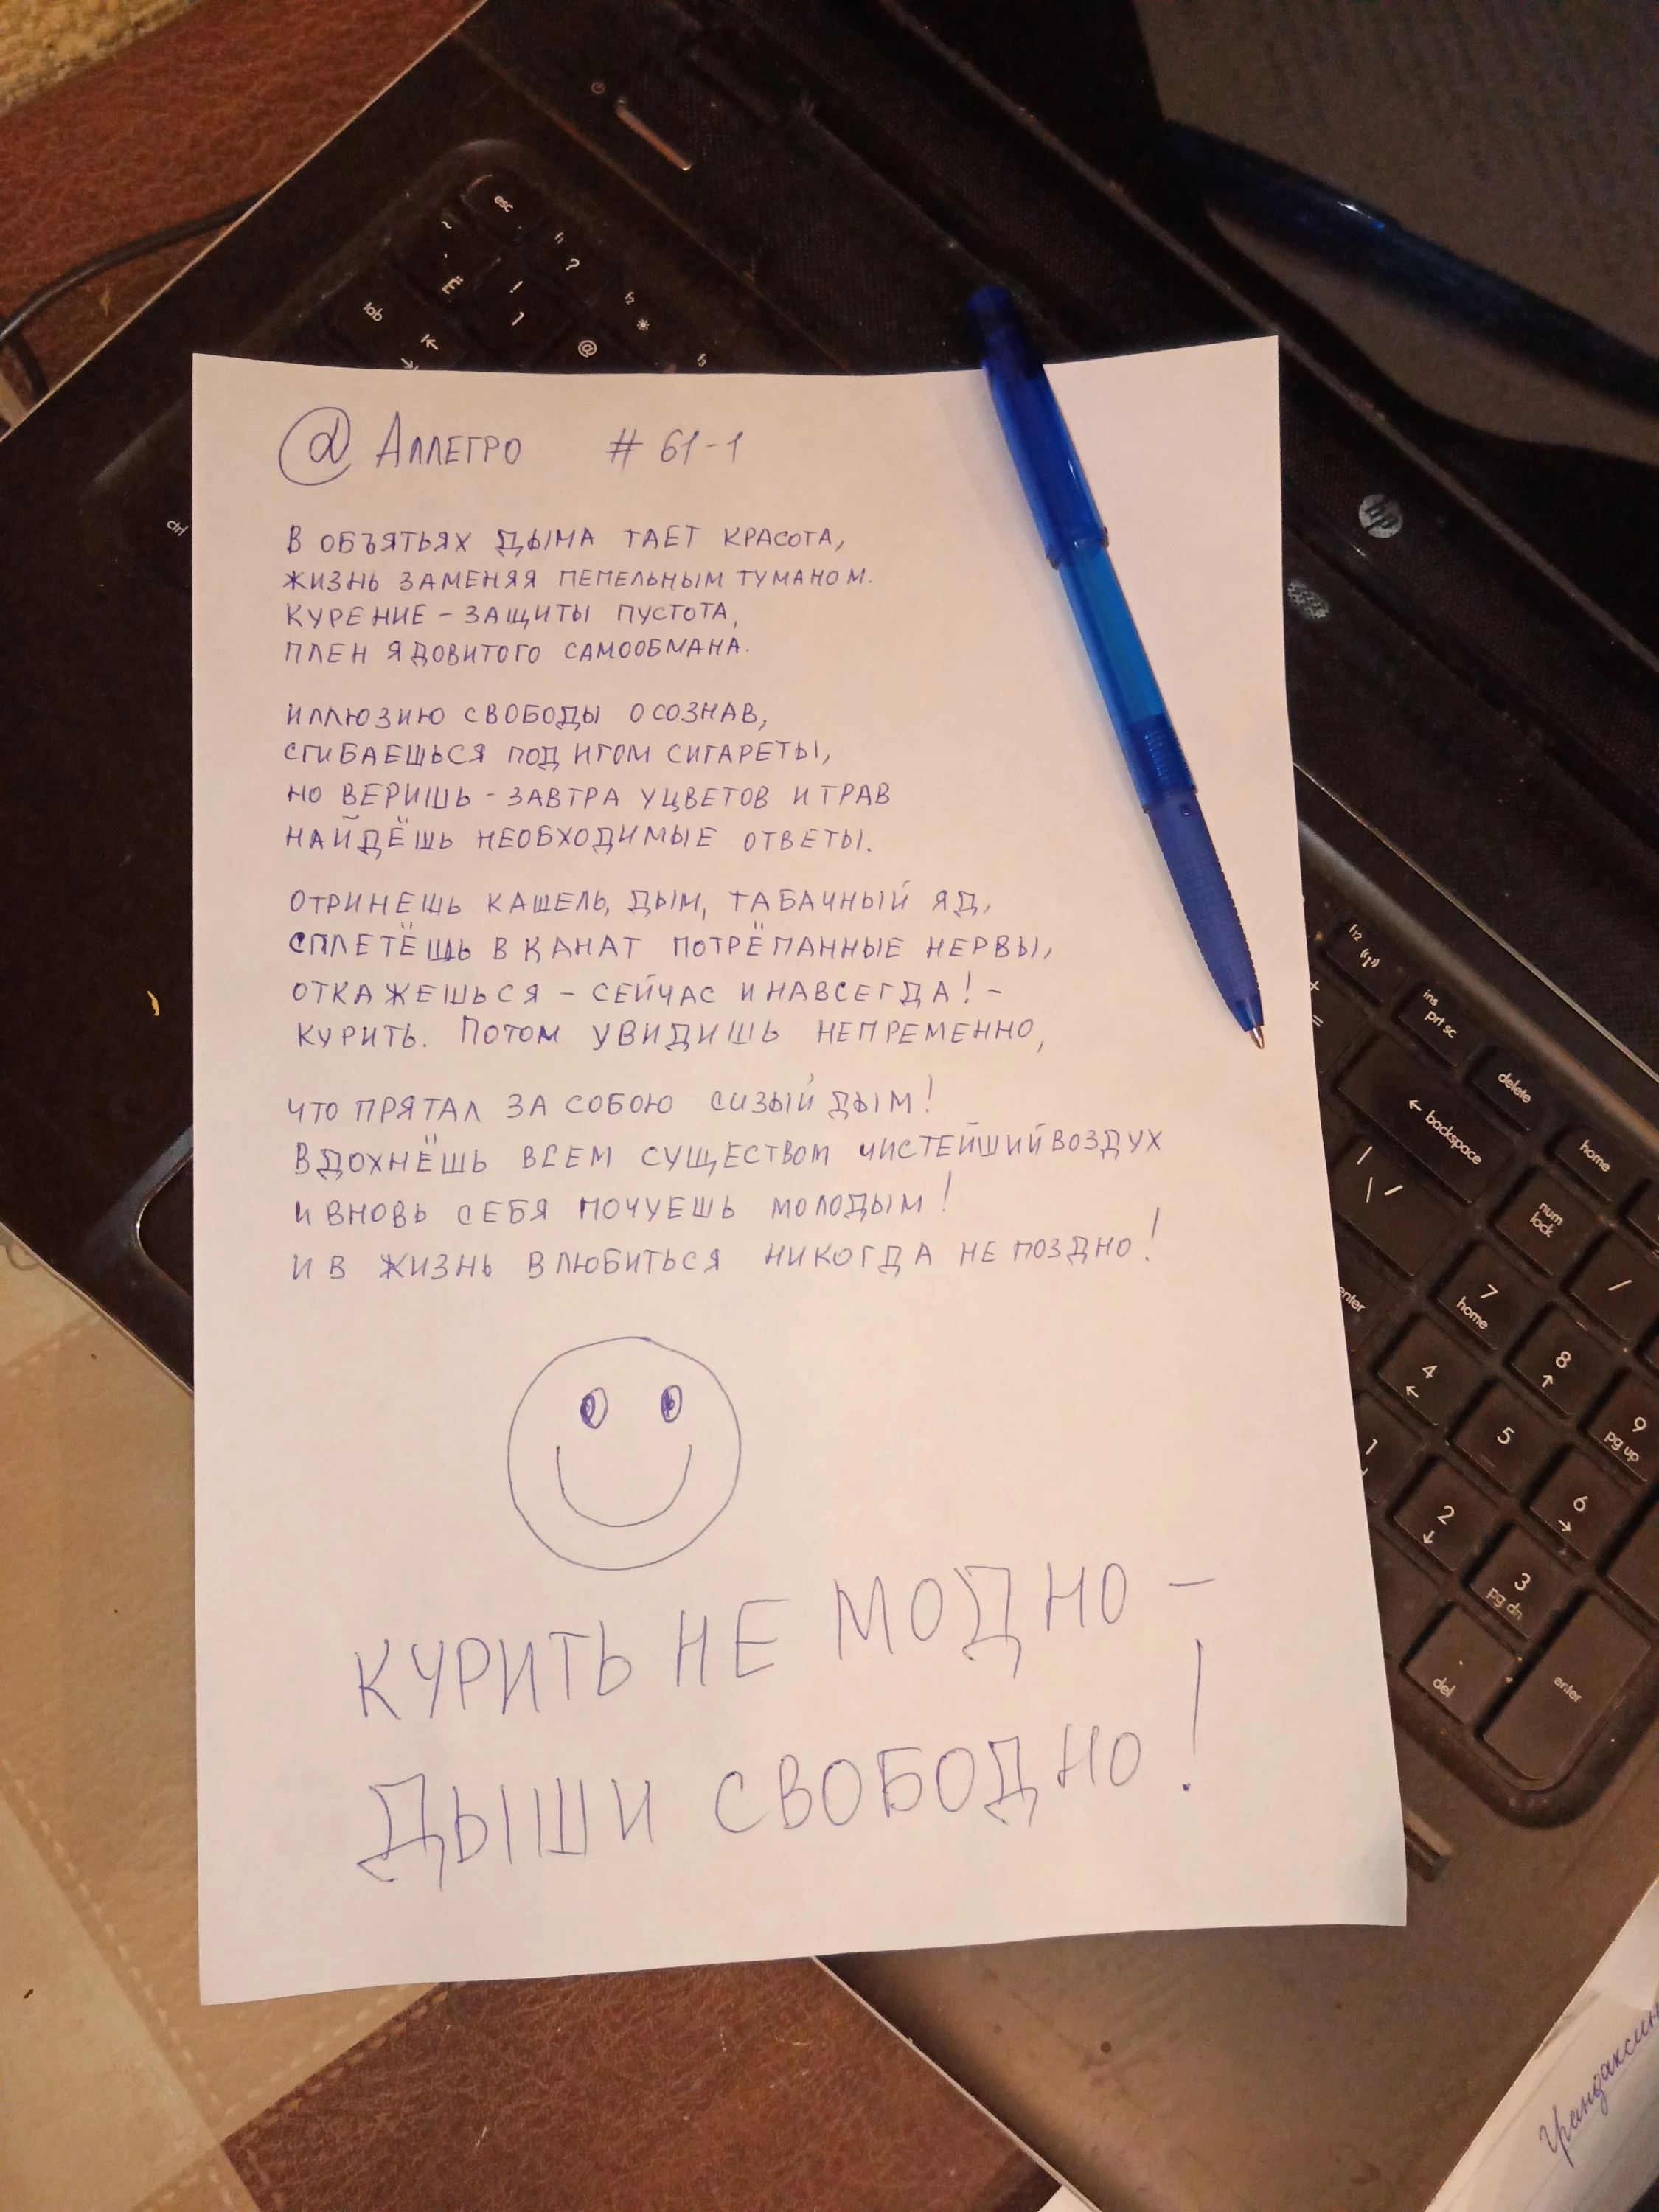 @ Аллегро # 61-1
В ОБЪЯТЬЯХ ДЫМА ТАЕТ КРАСОТА,
ЖИЗНЬ ЗАМЕНЯЯ ПЕПЕЛЬНЫМ ТУМАНОМ.
КУРЕНИЕ – ЗАЩИТЫ ПУСТОТА,
ПЛЕН ЯДОВИТОГО САМООБМАНА.
ИЛЛЮЗИЮ СВОБОДЫ ОСОЗНАВ,
СГИБАЕШЬСЯ ПОД ИГОМ СИГАРЕТЫ,
НО ВЕРИШЬ – ЗАВТРА У ЦВЕТОВ И ТРАВ
НАЙДЁШЬ НЕОБХОДИМЫЕ ОТВЕТЫ.
ОТРИНЕШЬ КАШЕЛЬ, ДЫМ, ТАБАЧНЫЙ ЯД,
СПЛЕТЁШЬ В КАНАТ ПОТРЁПАННЫЕ НЕРВЫ,
ОТКАЖЕШЬСЯ – СЕЙЧАС И НАВСЕГДА! –
КУРИТЬ. ПОТОМ УВИДИШЬ НЕПРЕМЕННО,
ЧТО ПРЯТАЛ ЗА СОБОЮ СИЗЫЙ ДЫМ!
ВДОХНЁШЬ ВСЕМ СУЩЕСТВОМ ЧИСТЕЙШИЙ ВОЗДУХ
И ВНОВЬ СЕБЯ ПОЧУЕШЬ МОЛОДЫМ!
И В ЖИЗНЬ ВЛЮБИТЬСЯ НИКОГДА НЕ ПОЗДНО!
КУРИТЬ НЕ МОДНО –
ДЫШИ СВОБОДНО!
esc
f1
?
f2
f3
~
Ё
!
1
@
tab
ctrl
hp
f12
ins
prt sc
delete
home
← backspace
+
=
|
\ /
num
lock
/
enter
7
home
8
↑
9
pg up
4
←
5
6
→
1
2
↓
3
pg dn
.
del
enter
Грандаксин